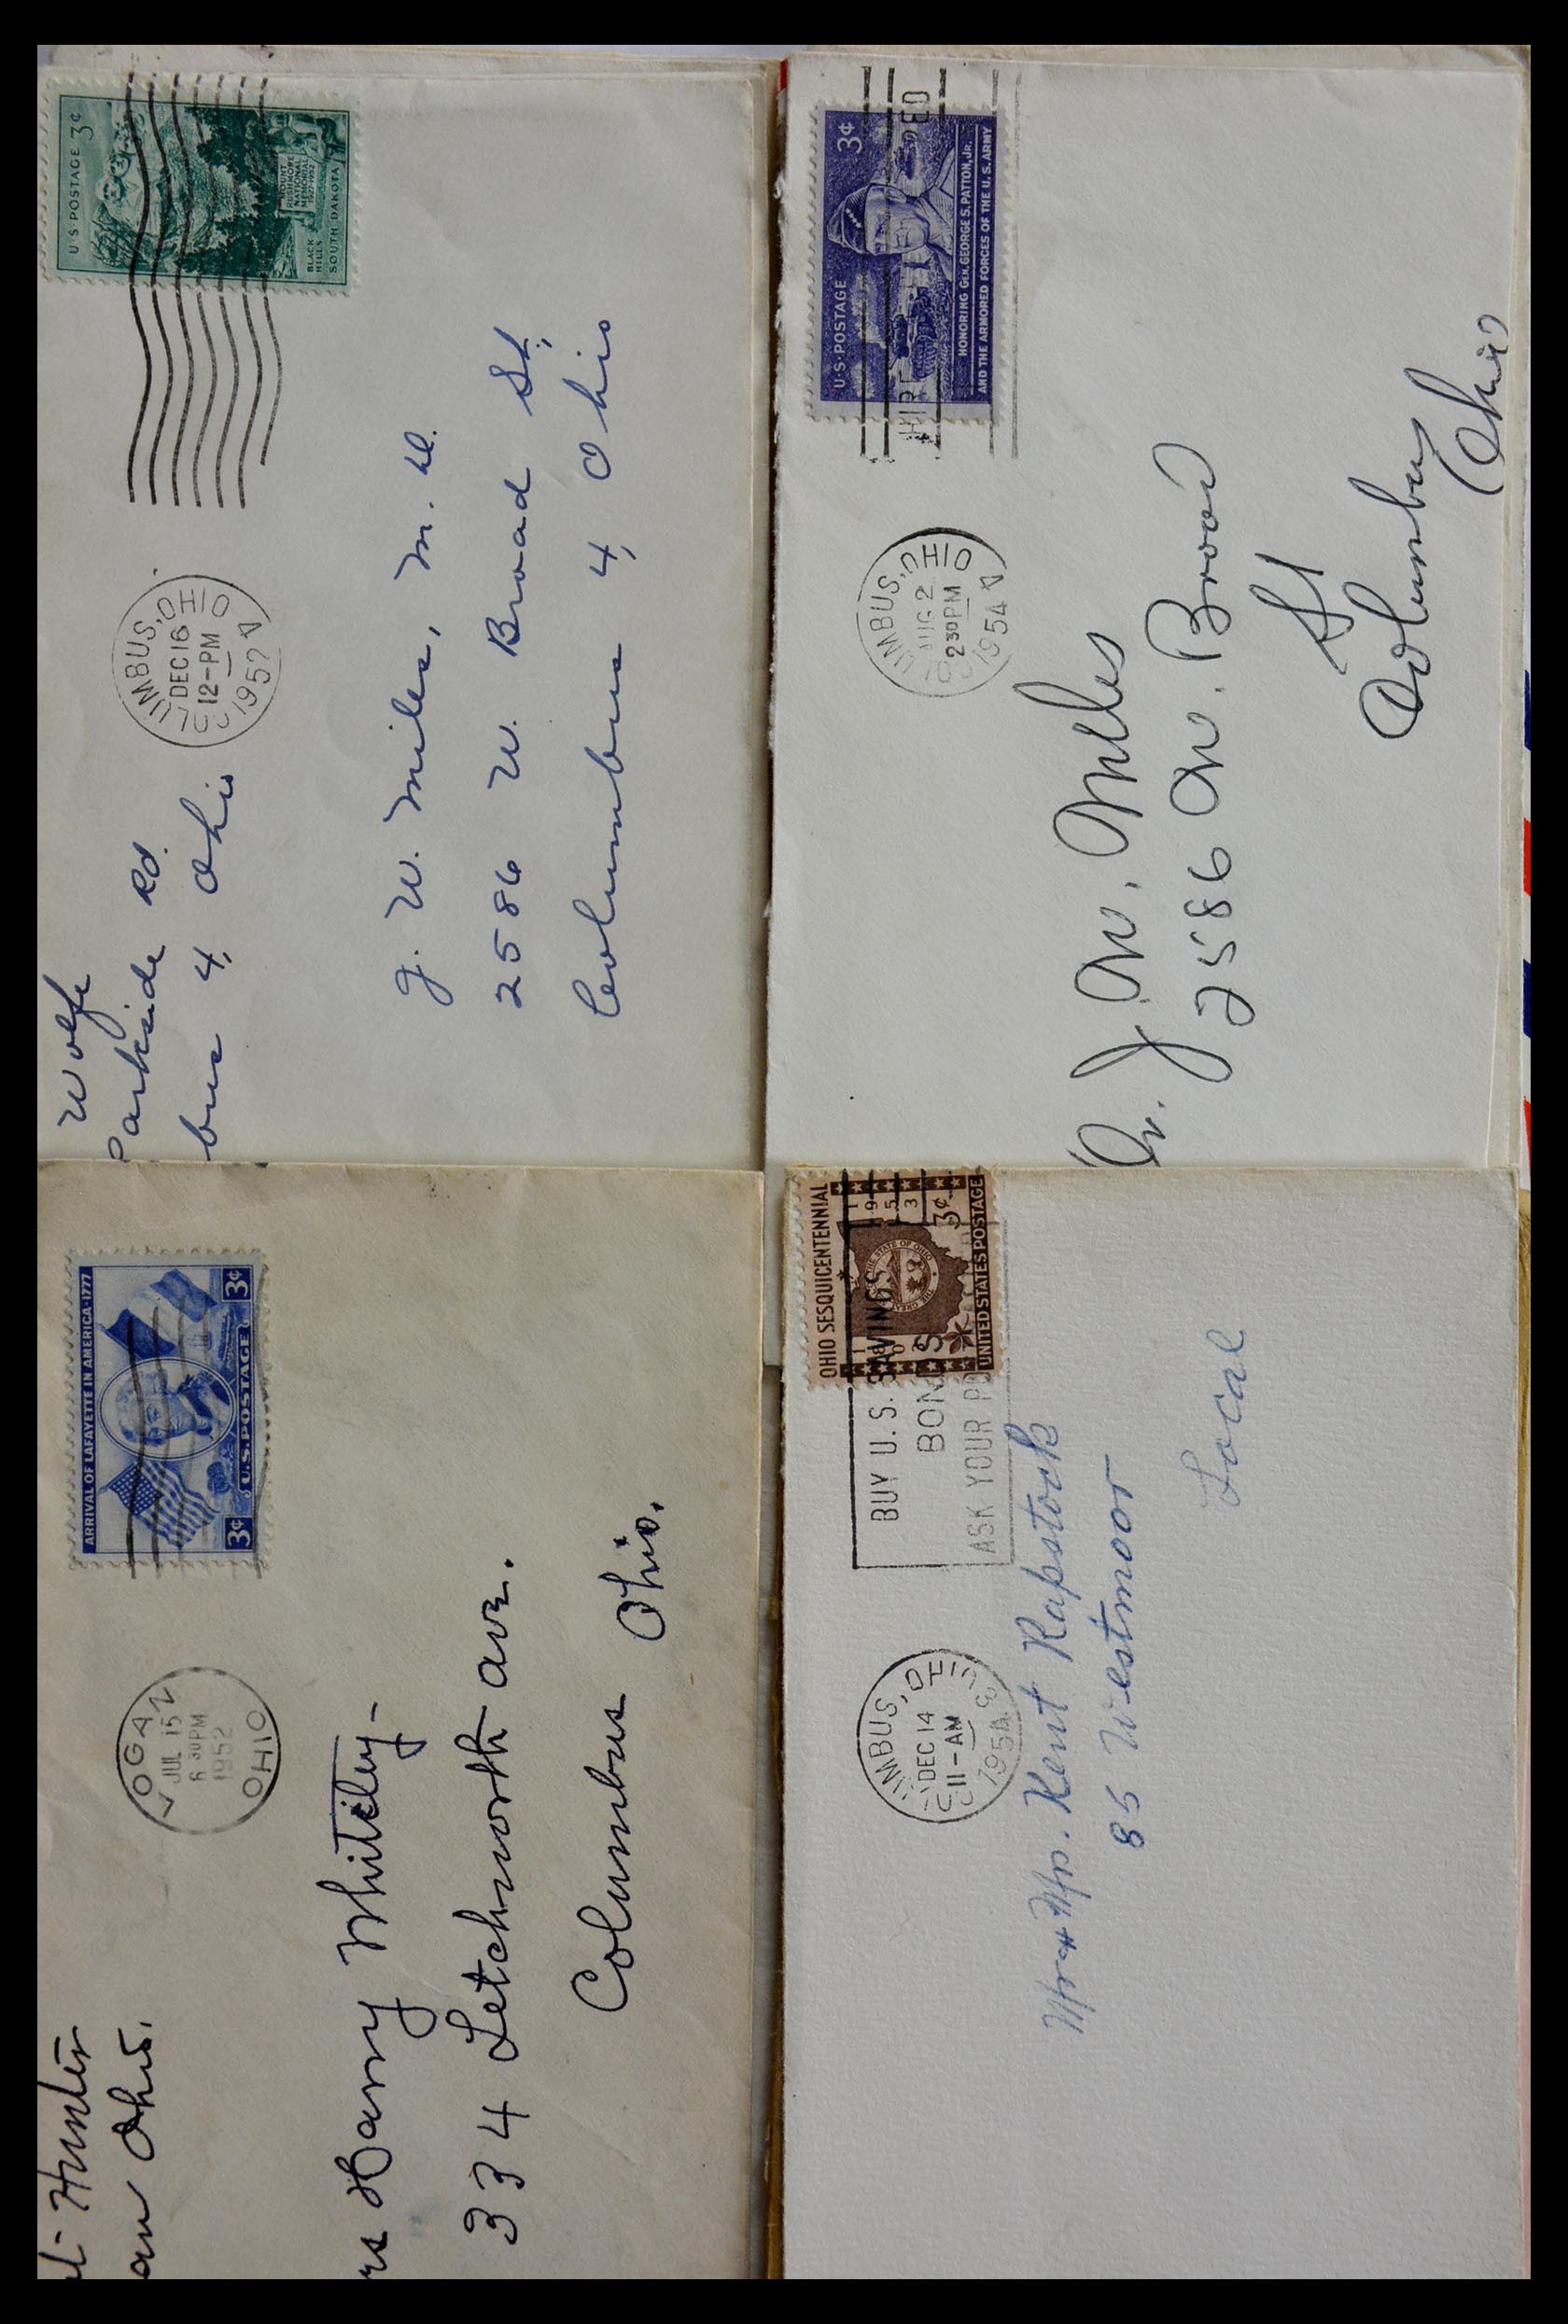 Wolfe
Parkside Rd.
bus 4, Ohio
COLUMBUS, OHIO
DEC 16
12-PM
1952
U·S·POSTAGE 3¢
MOUNT
RUSHMORE
NATIONAL
MEMORIAL
1927-1952
BLACK
HILLS
SOUTH DAKOTA
J. W. Miles, M. D.
2586 W. Broad St.,
Columbus 4, Ohio
COLUMBUS, OHIO
AUG 2
2 30 PM
1954
U·S·POSTAGE 3¢
HONORING GEN. GEORGE S. PATTON, JR.
AND THE ARMORED FORCES OF THE U. S. ARMY
Dr. J. W. Miles
2586 W. Broad
St
Columbus
Ohio
Hunter
an Ohio.
LOGAN
JUL 15
6 30 PM
1952
OHIO
ARRIVAL OF LAFAYETTE IN AMERICA·1777
3¢ U.S. POSTAGE 3¢
rs Harry Whitley-
334 Letchworth ave.
Columbus Ohio.
COLUMBUS, OHIO
DEC 14
11-AM
1954
BUY U.S. SAVINGS
BONDS
ASK YOUR PO
OHIO SESQUICENTENNIAL
1953
THE GREAT SEAL OF THE STATE OF OHIO
3¢
UNITED STATES POSTAGE
Mr & Mrs. Kent Rapstock
85 Westmoor
Local